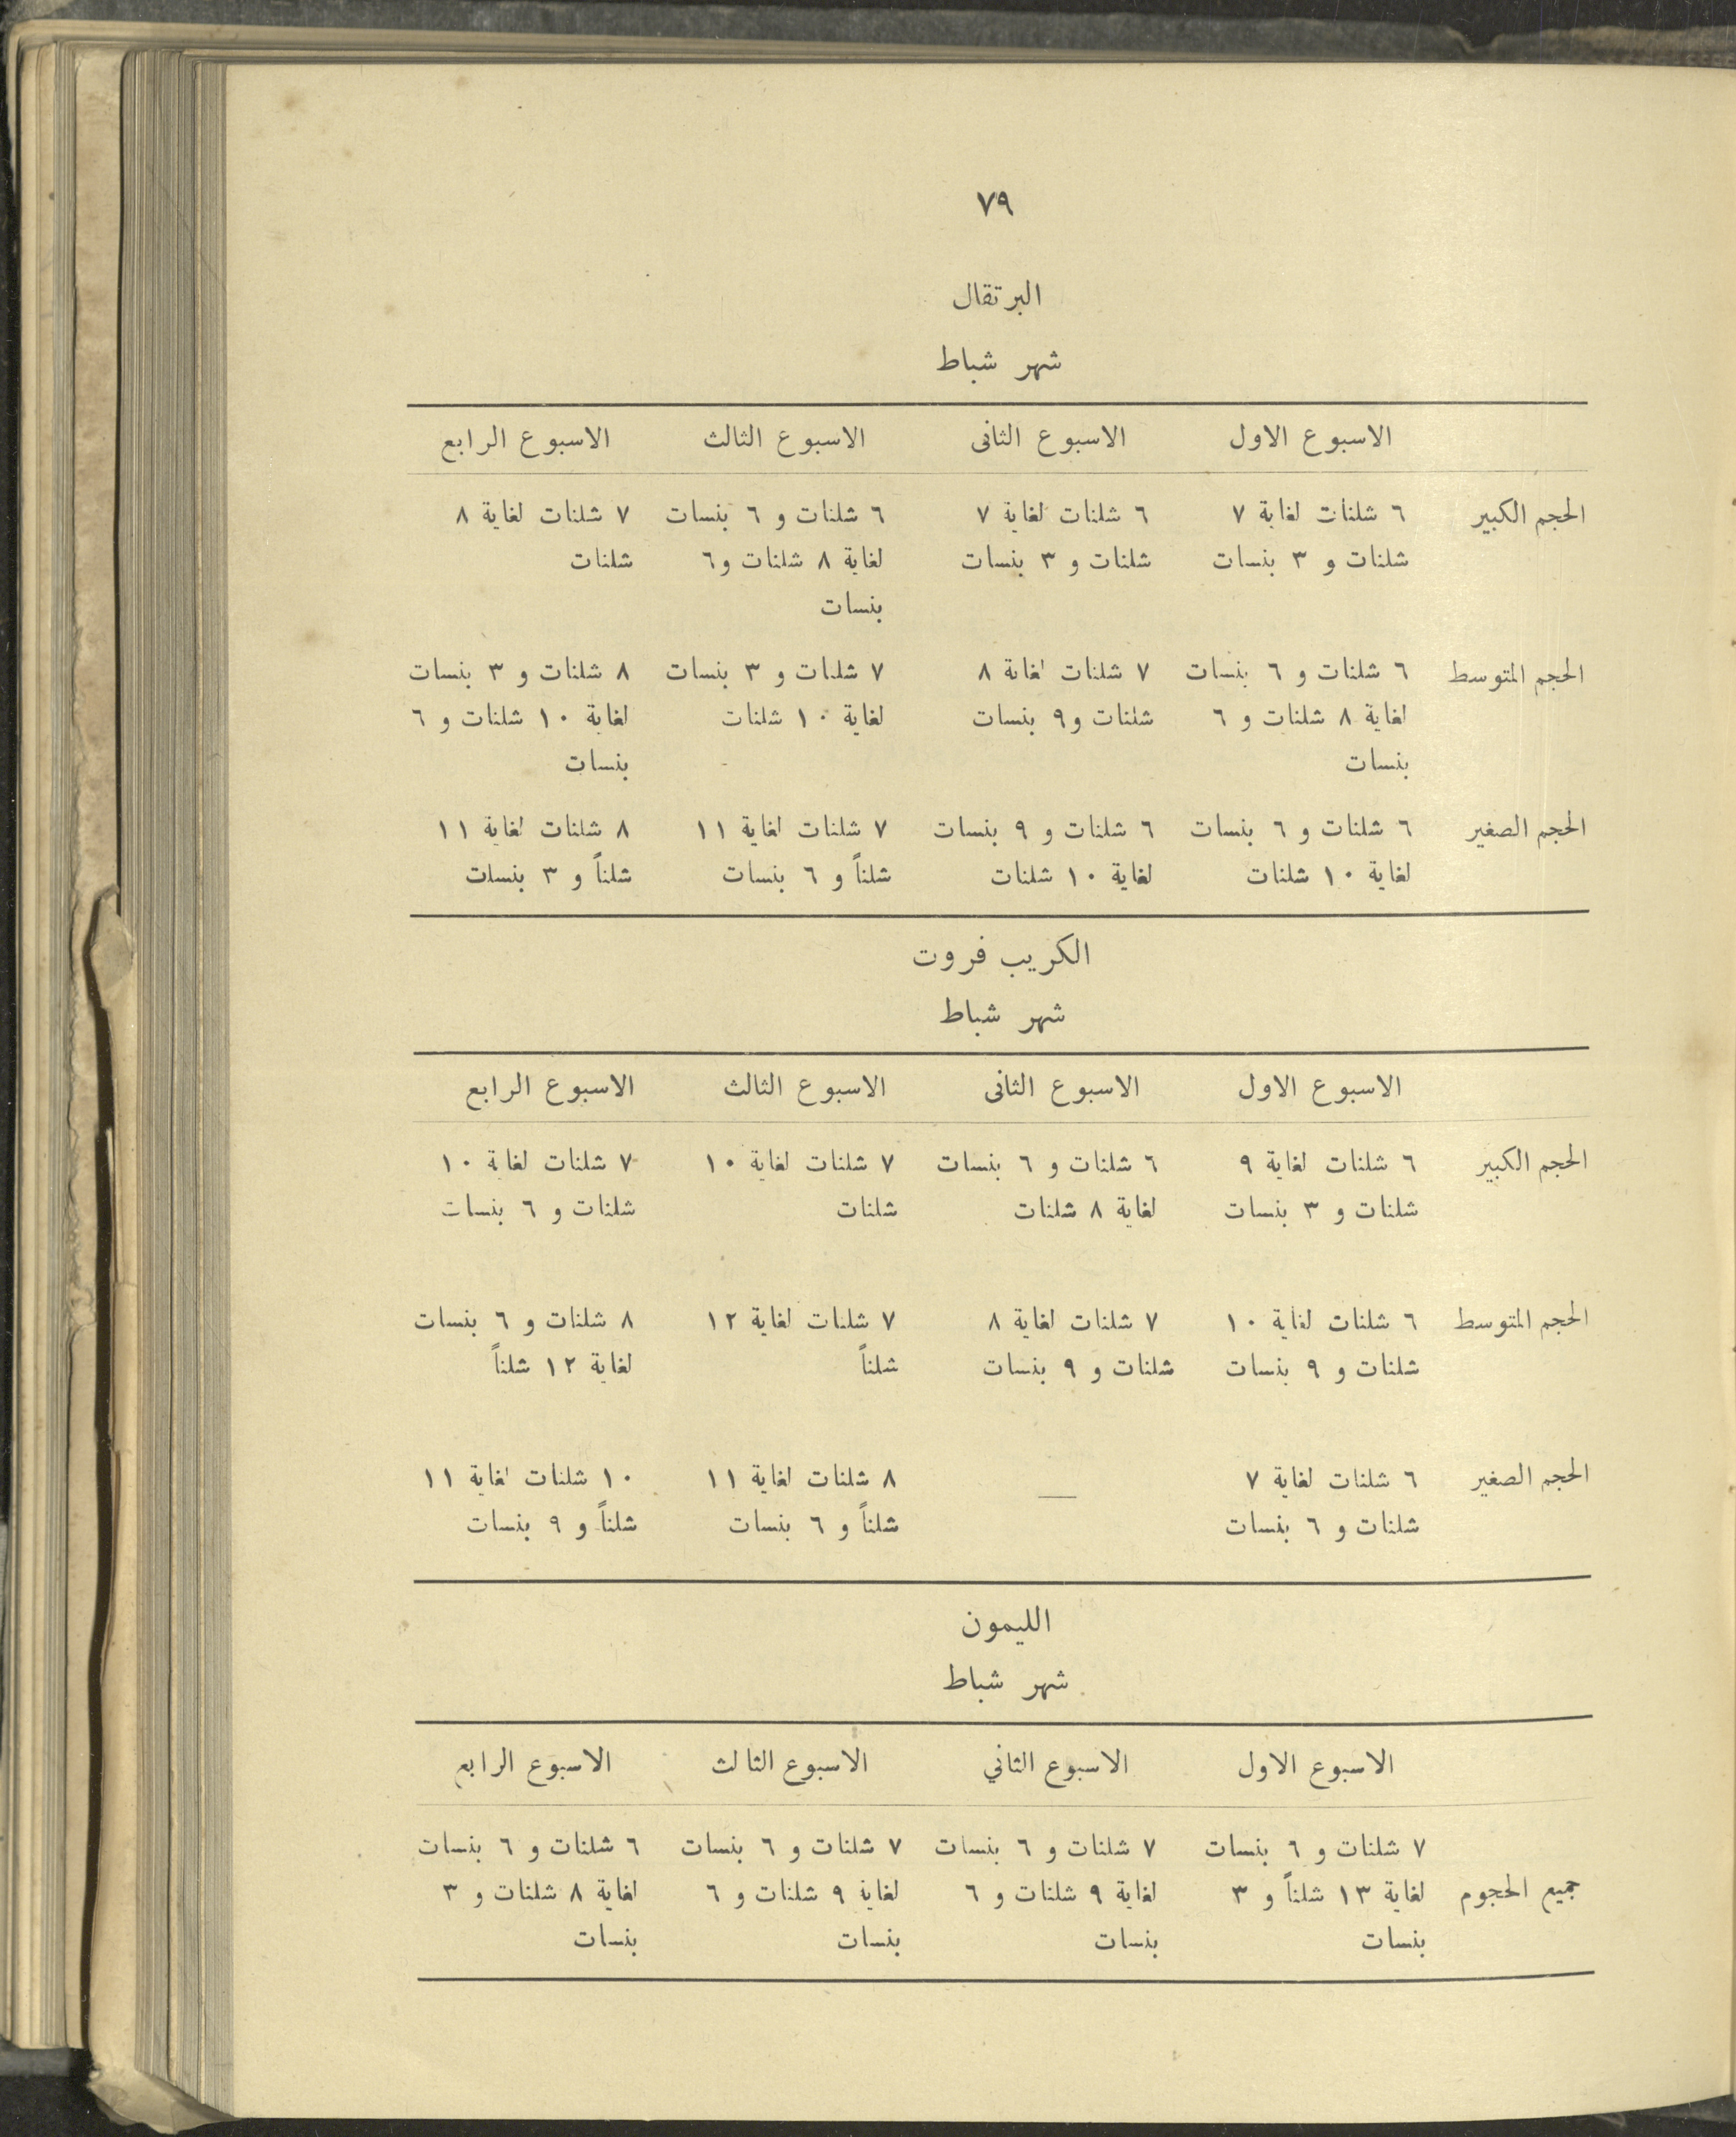 ٧٩
البرتقال
شهر شباط
الاسبوع الاول الاسبوع الثانى الاسبوع الثالث الاسبوع الرابع
الحجم الكبير ٦ شلنات لغاية ٧ ٦ شلنات لغاية ٧ ٦ شلنات و ٦ بنسات ٧ شلنات لغاية ٨
شلنات و ٣ بنسات شلنات و ٣ بنسات لغاية ٨ شلنات و٦ شلنات
بنسات
الحجم المتوسط ٦ شلنات و ٦ بنسات ٧ شلنات لغاية ٨ ٧ شلنات و ٣ بنسات ٨ شلنات و ٣ بنسات
لغاية ٨ شلنات و ٦ شلنات و٩ بنسات لغاية ١٠ شلنات لغاية ١٠ شلنات و ٦
بنسات بنسات
الحجم الصغير ٦ شلنات و ٦ بنسات ٦ شلنات و ٩ بنسات ٧ شلنات لغاية ١١ ٨ شلنات لغاية ١١
لغاية ١٠ شلنات لغاية ١٠ شلنات شلناً و ٦ بنسات شلناً و ٣ بنسات
الكريب فروت
شهر شباط
الاسبوع الاول الاسبوع الثانى الاسبوع الثالث الاسبوع الرابع
الحجم الكبير ٦ شلنات لغاية ٩ ٦ شلنات و ٦ بنسات ٧ شلنات لغاية ١٠ ٧ شلنات لغاية ١٠
شلنات و ٣ بنسات لغاية ٨ شلنات شلنات شلنات و ٦ بنسات
الحجم المتوسط ٦ شلنات لغاية ١٠ ٧ شلنات لغاية ٨ ٧ شلنات لغاية ١٢ ٨ شلنات و ٦ بنسات
شلنات و ٩ بنسات شلنات و ٩ بنسات شلناً لغاية ١٢ شلناً
الحجم الصغير ٦ شلنات لغاية ٧ — ٨ شلنات لغاية ١١ ١٠ شلنات لغاية ١١
شلنات و ٦ بنسات شلناً و ٦ بنسات شلناً و ٩ بنسات
الليمون
شهر شباط
الاسبوع الاول الاسبوع الثاني الاسبوع الثالث الاسبوع الرابع
٧ شلنات و ٦ بنسات ٧ شلنات و ٦ بنسات ٧ شلنات و ٦ بنسات ٦ شلنات و ٦ بنسات
جميع الحجوم لغاية ١٣ شلناً و ٣ لغاية ٩ شلنات و ٦ لغاية ٩ شلنات و ٦ لغاية ٨ شلنات و ٣
بنسات بنسات بنسات بنسات